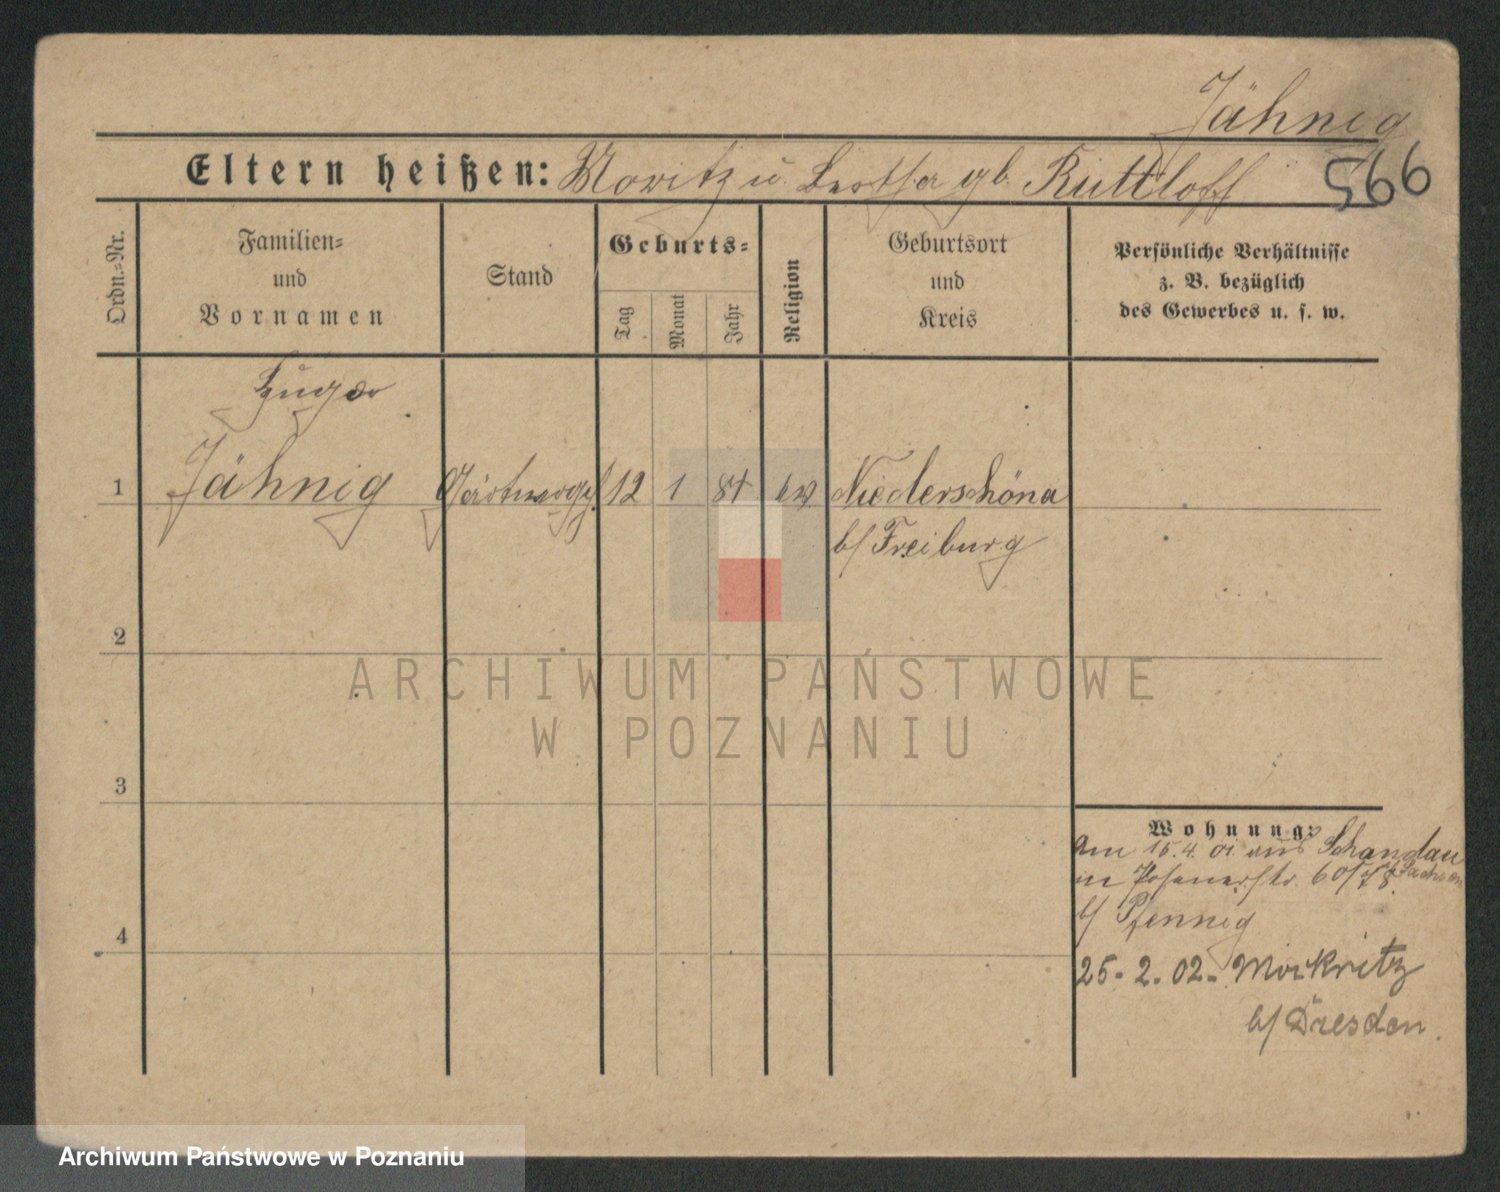 Jähnig
Eltern heißen: Moritz u. Bertha gb. Ruttloff
566
Ordn.=Nr.
Familien=
und
Vornamen
Stand
Geburts=
Tag
Monat
Jahr
Religion
Geburtsort
und
Kreis
Persönliche Verhältnisse
z. B. bezüglich
des Gewerbes u. s. w.
1 Jähnig Gärtnergeh. 12 1 81 ev. Niederschöna
b/ Freiburg
2
ARCHIWUM PAŃSTWOWE
W POZNANIU
3
Wohnung:
am 15.4.01. aus Schandau
in Posenerstr. 60/78. Sachsen
b/ Pfennig
4
25-2.02- Mockritz
b/ Dresden.
Archiwum Państwowe w Poznaniu